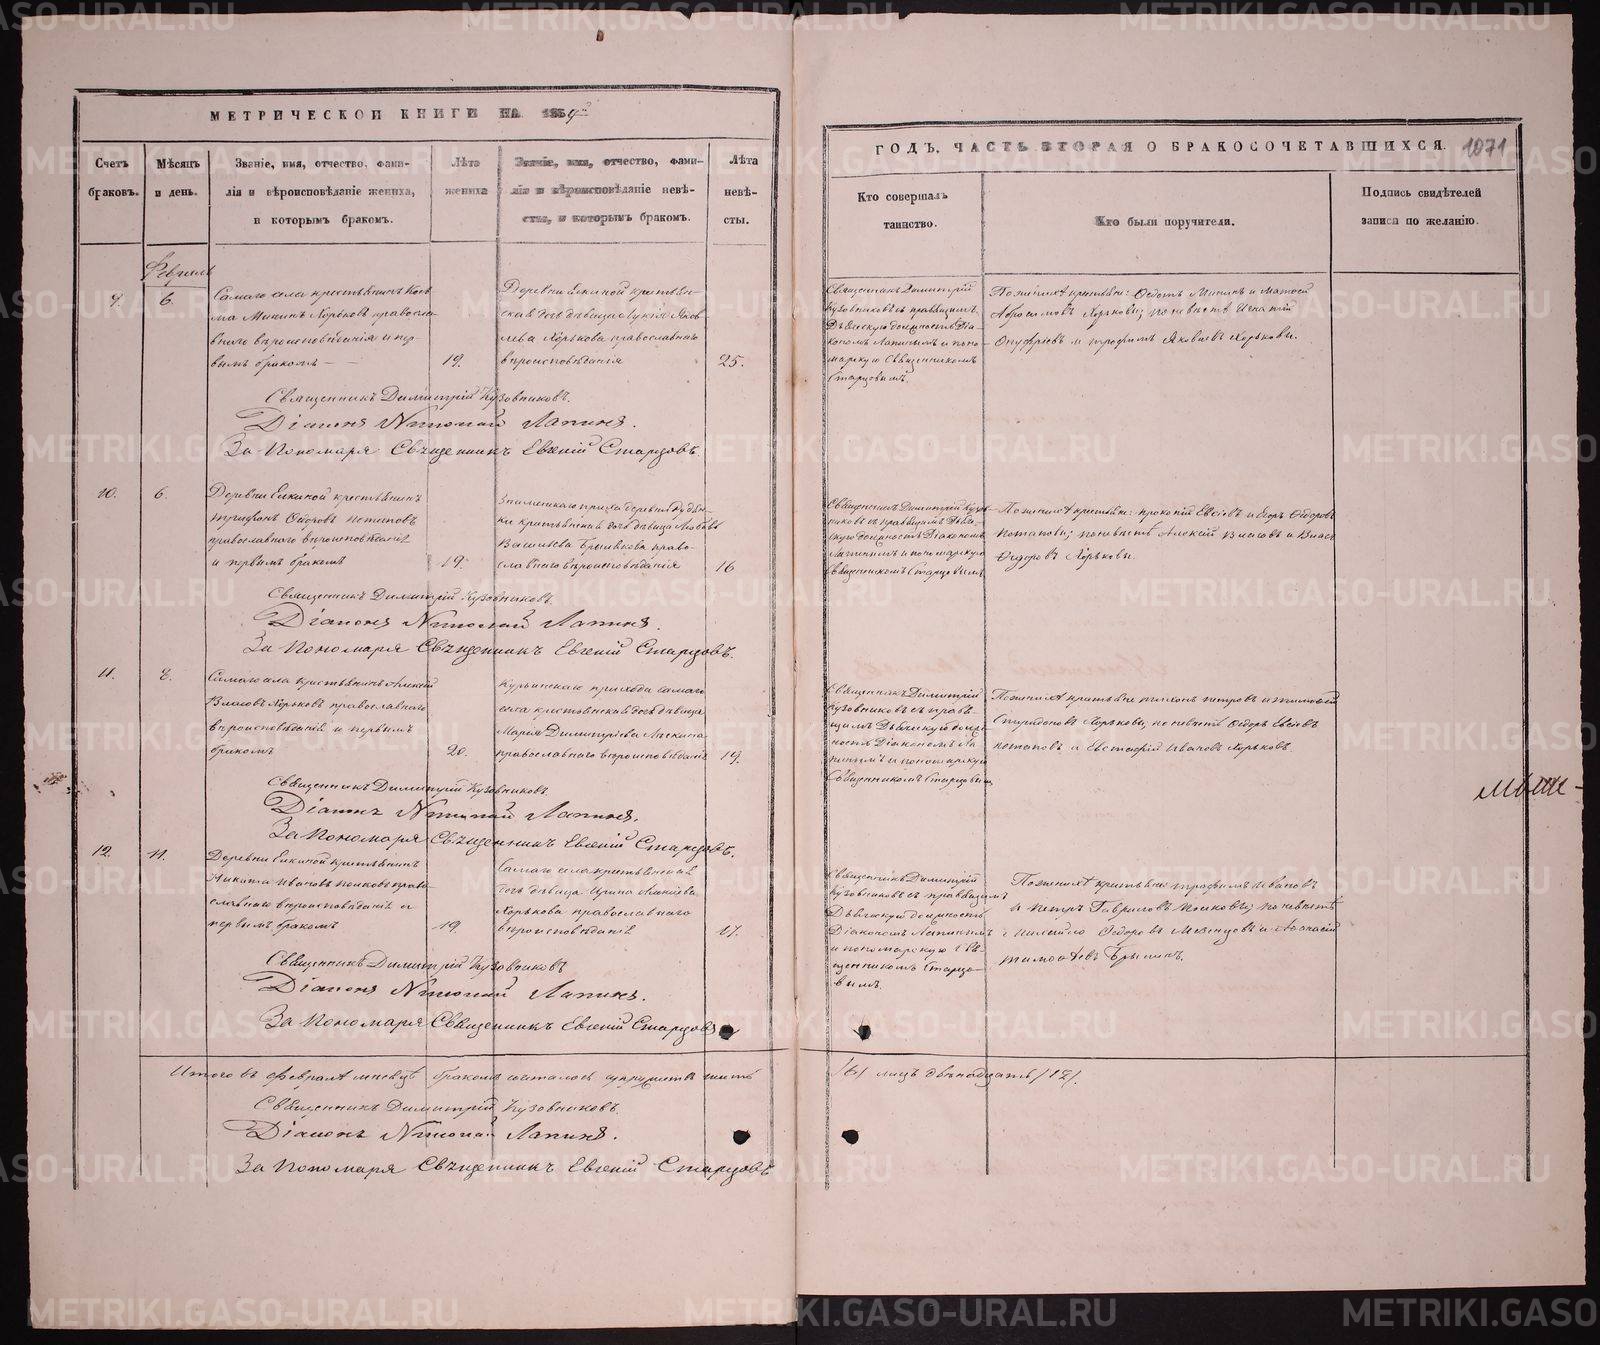 МЕТРИЧЕСКОЙ КНИГИ НА 1859
ГОДЪ, ЧАСТЬ ВТОРАЯ О БРАКОСОЧЕТАВШИХСЯ.
1071
Счетъ
браковъ.
Мѣсяцъ
и день.
Званіе, имя, отчество, фами-
лія и вѣроисповѣданіе жениха,
и которымъ бракомъ.
Лѣта
жениха
Званіе, имя, отчество, фами-
лія и вѣроисповѣданіе невѣ-
сты, и которымъ бракомъ.
Лѣта
невѣ-
сты.
Кто совершалъ
таинство.
Кто были поручители.
Подпись свидѣтелей
записи по желанію.
Февраль
9.
6.
Самаго села крестьянинъ Козь
ма Мининъ Хорьковъ правосла
внаго вѣроисповѣданія и пер
вымъ бракомъ
19.
Деревни Елкиной крестьян-
ская дочь дѣвица Лукія Яков
лева Хорькова православнаго
вѣроисповѣданія
25.
Священникъ Димитрій
Кузовниковъ съ правящимъ
Дьяческую должность Діа-
кономъ Лапинымъ и поно-
марскую Священникомъ
Старцовымъ.
По женихѣ крестьяне: Ѳедотъ Мининъ и Матвей
Абросимовъ Хорьковы; по невѣстѣ Игнатій
Онуфріевъ и Трофимъ Яковлевъ Хорьковы.
Священникъ Димитрій Кузовниковъ.
Діаконъ Николай Лапинъ.
За Пономаря Священникъ Евгеній Старцовъ.
10.
6.
Деревни Елкиной крестьянинъ
Трифонъ Ѳедоровъ Потаповъ
православнаго вѣроисповѣданія
и первымъ бракомъ
19.
Знаменскаго прихода деревни
крестьянская дочь дѣвица Любовь
Васильева право-
славнаго вѣроисповѣданія
16
Священникъ Димитрій Кузов
никовъ съ правящимъ Дьяче-
скую должность Діакономъ
Лапинымъ и пономарскую
Священникомъ Старцовымъ
По женихѣ крестьяне: Прокопій Евсіевъ и Егоръ Ѳедоровъ
Потаповы; по невѣстѣ Алексій Власовъ и Власъ
Ѳедоровъ Хорьковы.
Священникъ Димитрій Кузовниковъ.
Діаконъ Николай Лапинъ.
За Пономаря Священникъ Евгеній Старцовъ.
11.
8.
Самаго села крестьянинъ Алексій
Власовъ Хорьковъ православнаго
вѣроисповѣданія и первымъ
бракомъ
20.
Курьинскаго прихода самаго
села крестьянская дочь дѣвица
Марія Димитріева
православнаго вѣроисповѣданія
19.
Священникъ Димитрій
Кузовниковъ съ правя-
щимъ Дьяческую долж
ность Діакономъ Ла
пинымъ и пономарскую
Священникомъ Старцовымъ
По женихѣ крестьяне Тихонъ Петровъ и Тимофей
Спиридоновъ Хорьковы, по невѣстѣ Ѳедоръ Евсіевъ
Потаповъ и Евстафій Ивановъ Хорьковъ.
Священникъ Димитрій Кузовниковъ
Діаконъ Николай Лапинъ.
За Пономаря Священникъ Евгеній Старцовъ.
12.
11.
Деревни Елкиной крестьянинъ
Никита Ивановъ право-
славнаго вѣроисповѣданія и
первымъ бракомъ
19.
Самаго села крестьянская
дочь дѣвица Ирина
Хорькова православнаго
вѣроисповѣданія
17.
Священникъ Димитрій
Кузовниковъ съ правящимъ
Дьяческую должность
Діакономъ Лапинымъ
и пономарскую Свя-
щенникомъ Старцо-
вымъ.
По женихѣ крестьяне Трофимъ Ивановъ
и Петръ Гавриловъ по невѣстѣ
Ѳедоровъ Мезенцовъ и Афанасій
Тимофеевъ
Священникъ Димитрій Кузовниковъ
Діаконъ Николай Лапинъ.
За Пономаря Священникъ Евгеній Старцовъ
Итого въ Февралѣ месяцѣ бракомъ сочталось супружествъ шесть /6/ лицъ двѣнадцать /12/.
Священникъ Димитрій Кузовниковъ.
Діаконъ Николай Лапинъ.
За Пономаря Священникъ Евгеній Старцовъ
METRIKI.GASO-URAL.RU